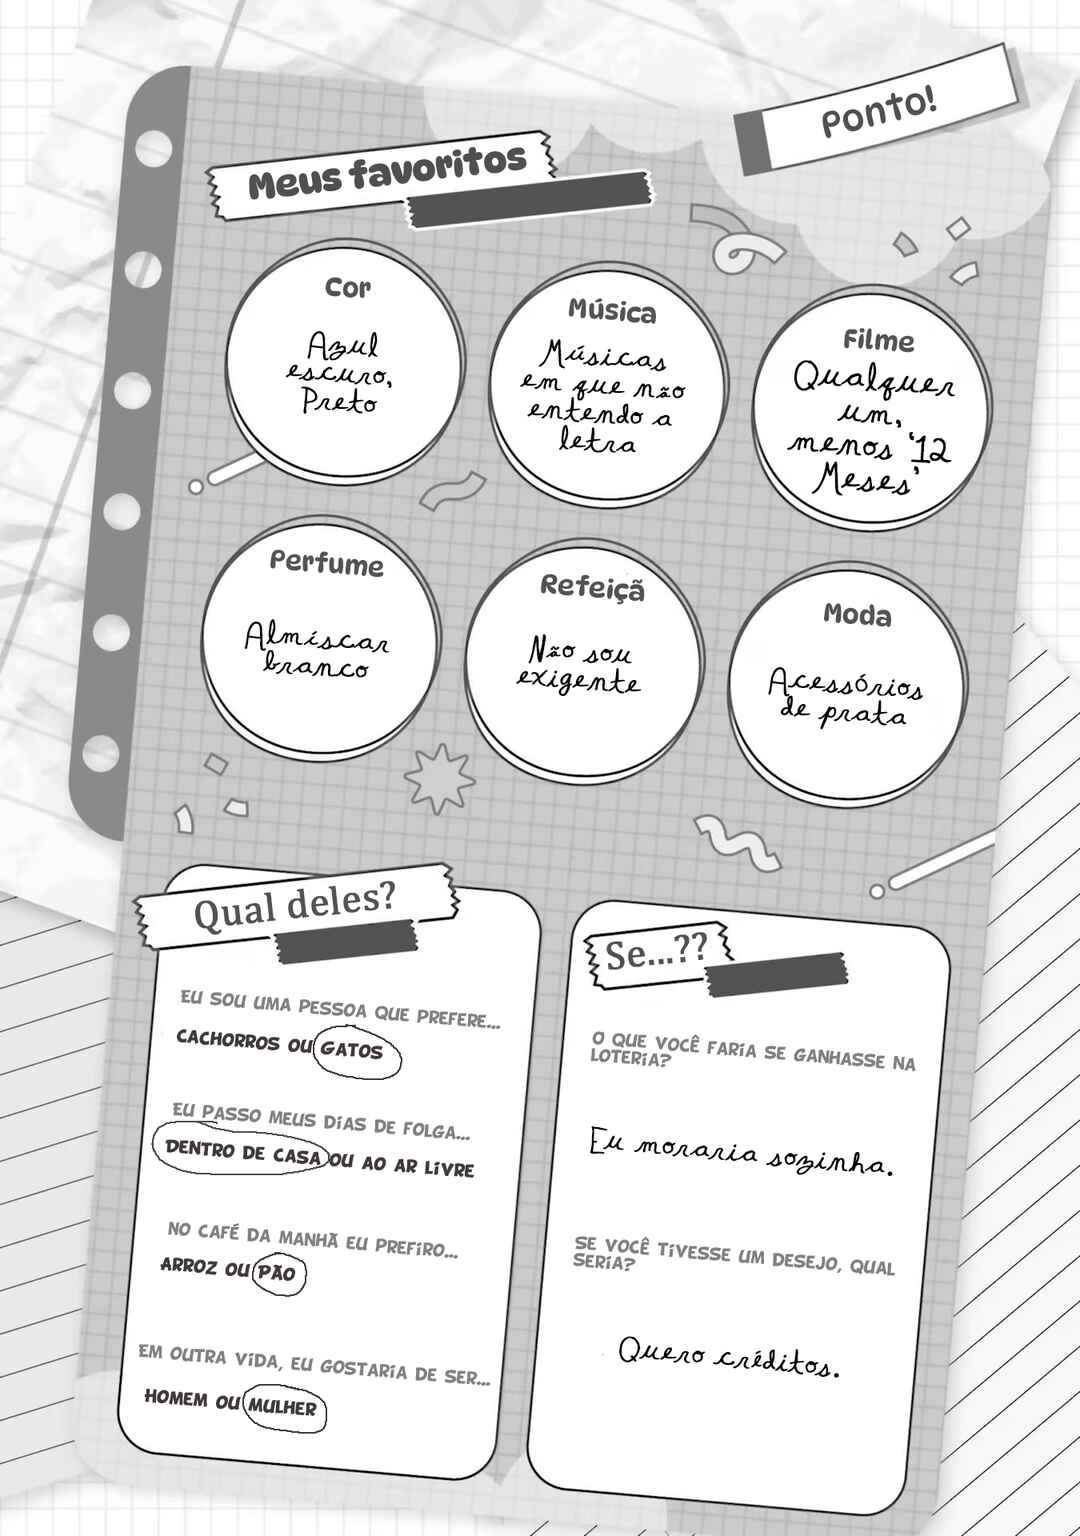 Ponto!
Meus favoritos
Cor
Azul
escuro,
Preto
Música
Músicas
em que não
entendo a
letra
Filme
Qualquer
um,
menos '12
Meses'
Perfume
Almíscar
branco
Refeiçã
Não sou
exigente
Moda
Acessórios
de prata
Qual deles?
EU SOU UMA PESSOA QUE PREFERE...
CACHORROS OU GATOS
EU PASSO MEUS DIAS DE FOLGA...
DENTRO DE CASA OU AO AR LIVRE
NO CAFÉ DA MANHÃ EU PREFIRO...
ARROZ OU PÃO
EM OUTRA VIDA, EU GOSTARIA DE SER...
HOMEM OU MULHER
Se...??
O QUE VOCÊ FARIA SE GANHASSE NA
LOTERIA?
Eu moraria sozinha.
SE VOCÊ TIVESSE UM DESEJO, QUAL
SERIA?
Quero créditos.